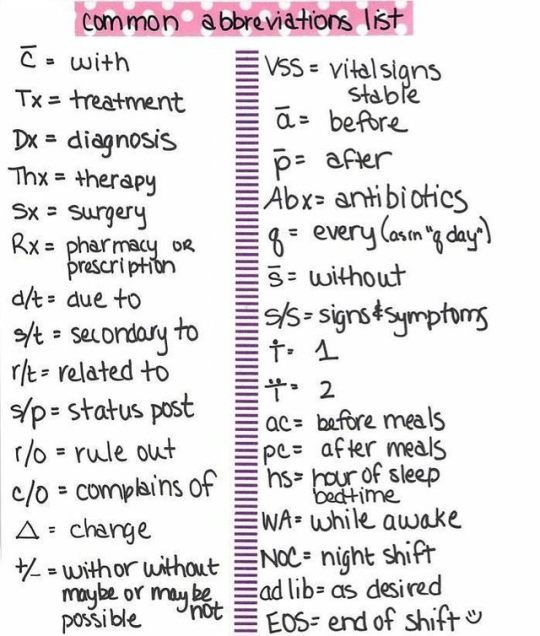 common abbreviations list
c̄ = with
Tx = treatment
Dx = diagnosis
Thx = therapy
Sx = surgery
Rx = pharmacy OR
prescription
d/t = due to
s/t = secondary to
r/t = related to
s/p = status post
r/o = rule out
c/o = complains of
△ = change
+/- = with or without
maybe or maybe not
possible
VSS = vital signs
stable
ā = before
p̄ = after
Abx = antibiotics
q = every (as in "q day")
s̄ = without
s/s = signs & symptoms
i̅ = 1
i̅i̅ = 2
ac = before meals
pc = after meals
hs = hour of sleep
bedtime
WA = while awake
NOC = night shift
ad lib = as desired
EOS = end of shift ☺